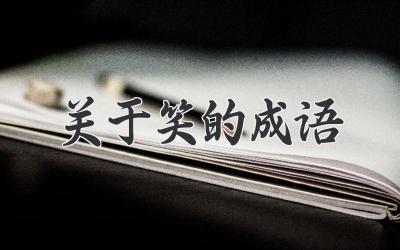 关于笑的成语